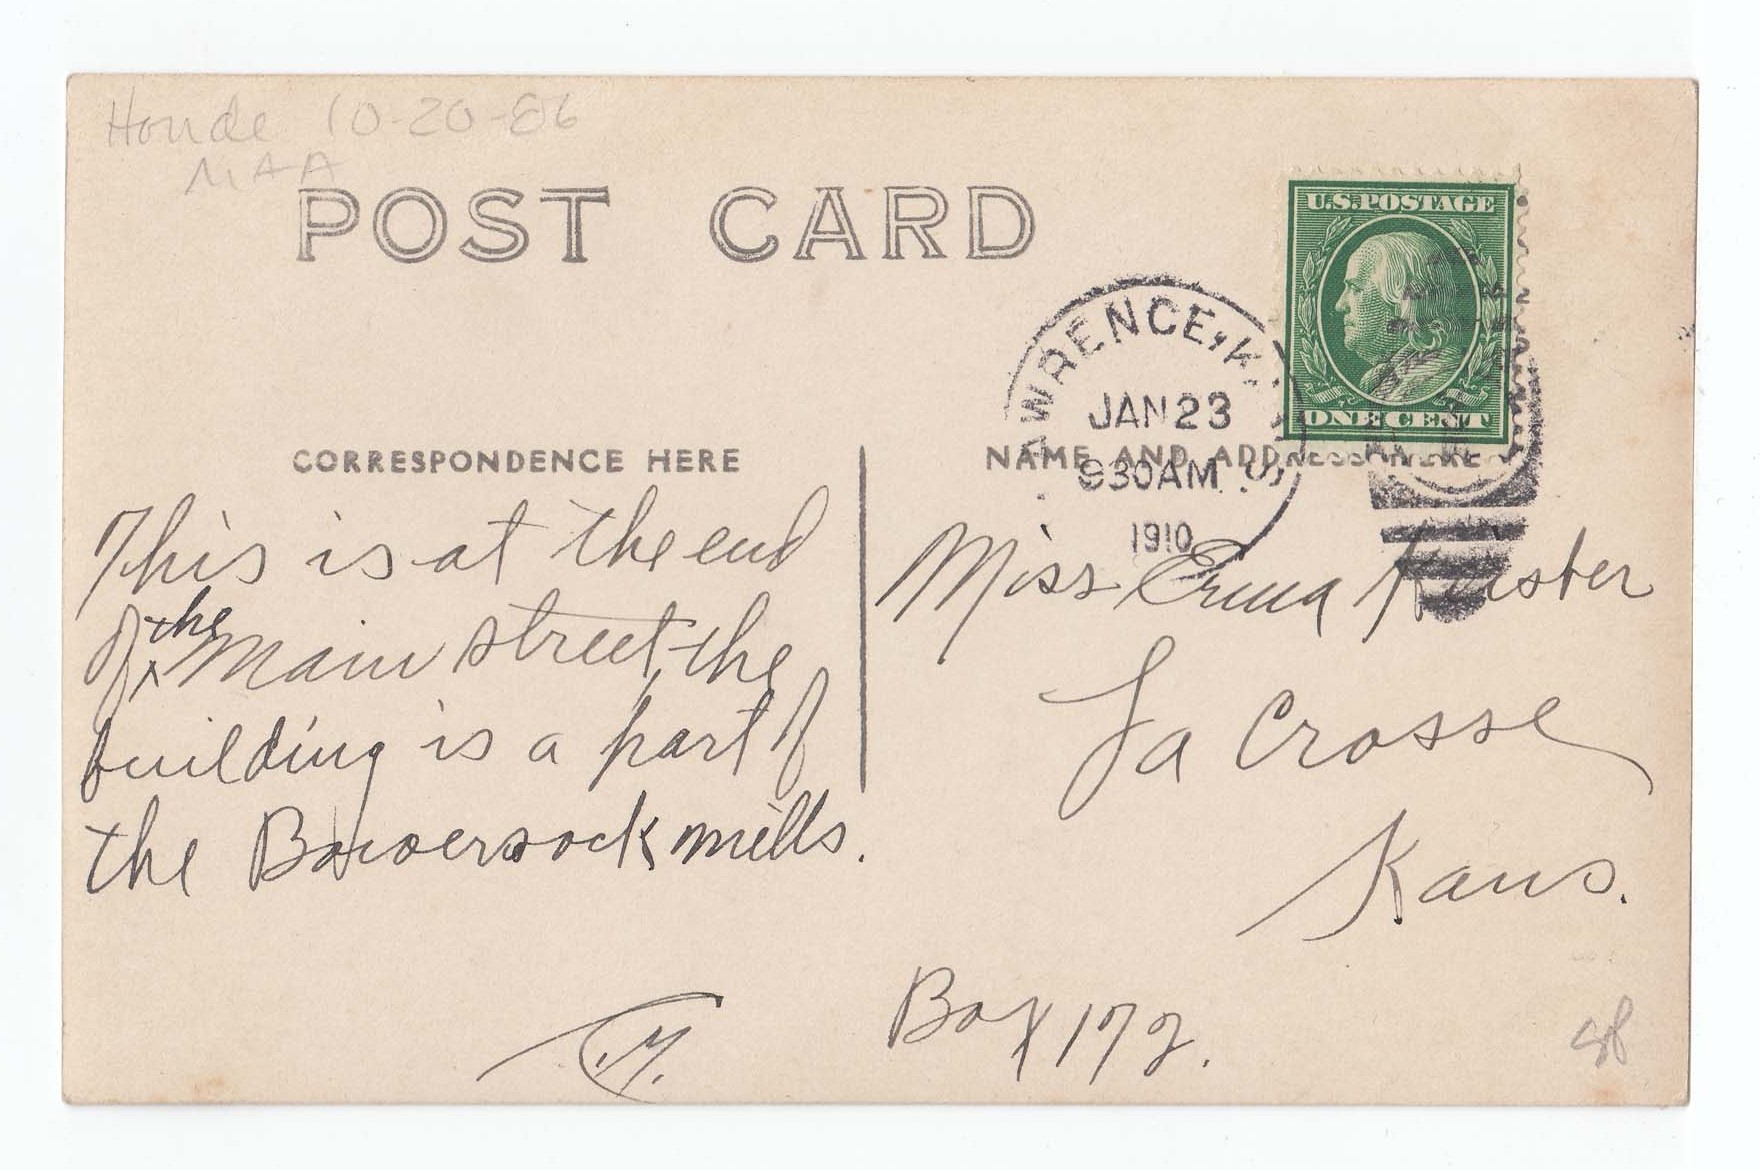 Houde 10-20-86
MAA
POST CARD
U.S. POSTAGE
ONE CENT
LAWRENCE, KANS.
JAN 23
930AM
1910
CORRESPONDENCE HERE
NAME AND ADDRESS HERE
This is at the end
of the Main street, the
building is a part of
the Bowersock mills.
Miss Erma
La Crosse
Kans.
Box 172.